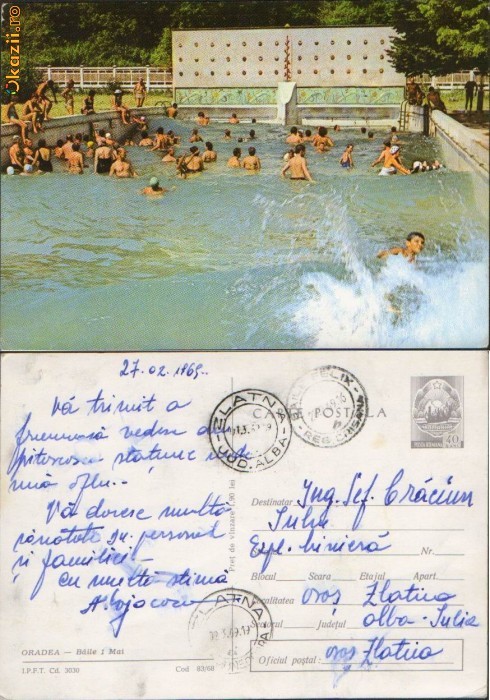 Okazii.ro
27.02.1969.
Vă trimit o
frumoasă vedere din
pitorescu stațiune unde
mă aflu.
Vă doresc multă
sănătate dv. personal
și familiei
cu multă stimă
CARTE POSTALA
ZLATNA
JUD. ALBA
BAILE FELIX
REG. CRISANA
40
Pret de vînzare 1,90 lei
Destinatar Ing. Șef. Crăciun
Iuliu
Expl. minieră
Nr.
Blocul Scara Etajul Apart.
Localitatea oraș Zlatna
Sectorul Județul alba-Iulia
Oficiul poștal: oraș Zlatna
ZLATNA
ORADEA — Băile 1 Mai
I.P.F.T. Cd. 3030
Cod 83/68